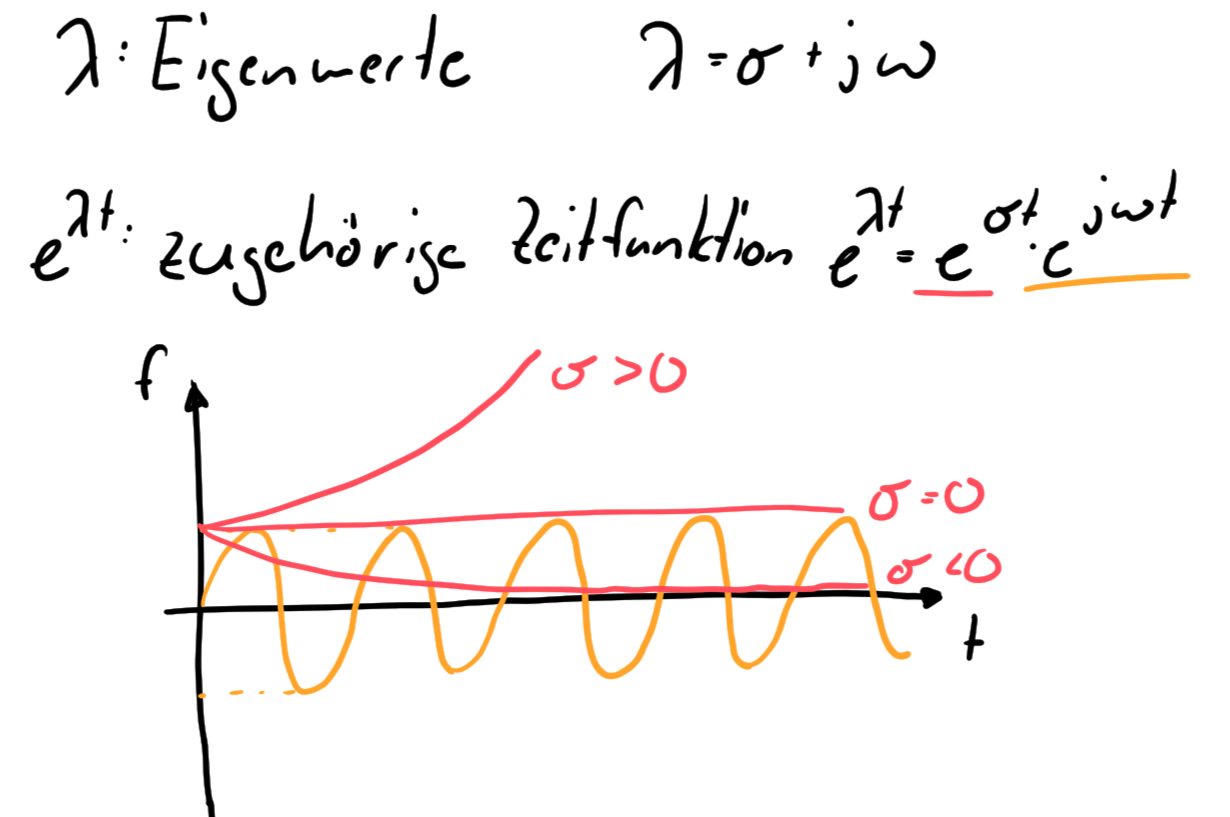 λ: Eigenwerte λ = σ + jω
e^λt: zugehörige Zeitfunktion e^λt = e^σt · e^jωt
f
σ > 0
σ = 0
σ < 0
t